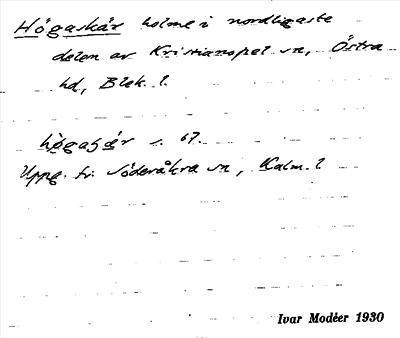 Högaskär holme i nordligaste
delen av Kristianopel sn, Östra
hd, Blek. l.
s. 67.
Uppg. fr. Söderåkra sn, Kalm. l
Ivar Modéer 1930